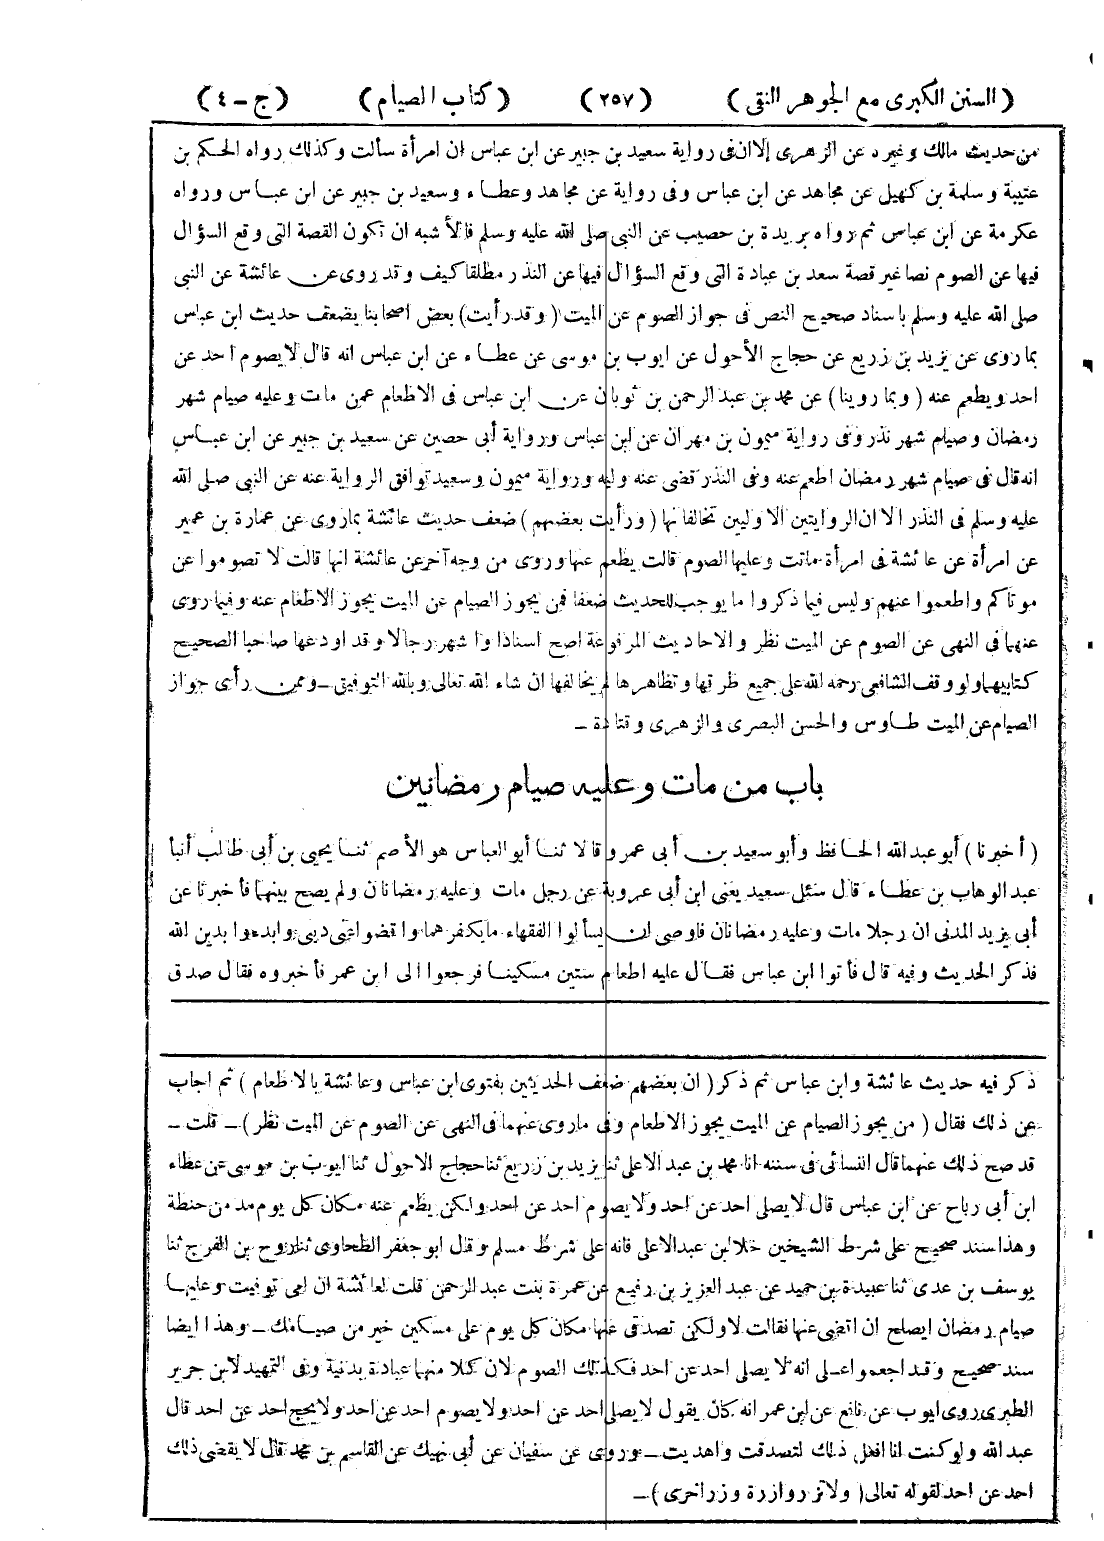 (السنن الكبرى مع الجوهر النقى) (٢٥٧) (كتاب الصيام) (ج - ٤)
من حديث مالك وغيره عن الزهرى إلا ان فى رواية سعيد بن جبير عن ابن عباس ان امرأة سألت وكذلك رواه الحكم بن
عتيبة وسلمة بن كهيل عن مجاهد عن ابن عباس وفى رواية عن مجاهد وعطاء وسعيد بن جبير عن ابن عباس ورواه
عكرمة عن ابن عباس ثم رواه بريدة بن حصيب عن النبى صلى الله عليه وسلم فالأشبه ان تكون القصة التى وقع السؤال
فيها عن الصوم نصا غير قصة سعد بن عبادة التى وقع السؤال فيها عن النذر مطلقا كيف وقد روى عن عائشة عن النبى
صلى الله عليه وسلم باسناد صحيح النص فى جواز الصوم عن الميت (وقد رأيت) بعض اصحابنا يضعف حديث ابن عباس
بما روى عن يزيد بن زريع عن حجاج الأحول عن ايوب بن موسى عن عطاء عن ابن عباس انه قال لا يصوم احد عن
احد ويطعم عنه (وبما روينا) عن محمد بن عبد الرحمن بن ثوبان عن ابن عباس فى الاطعام عمن مات وعليه صيام شهر
رمضان وصيام شهر نذر وفى رواية ميمون بن مهران عن ابن عباس ورواية أبى حصين عن سعيد بن جبير عن ابن عباس
انه قال فى صيام شهر رمضان اطعم عنه وفى النذر قضى عنه وليه ورواية ميمون وسعيد توافق الرواية عنه عن النبى صلى الله
عليه وسلم فى النذر الا ان الروايتين الاوليين تخالفانها (ورأيت بعضهم) ضعف حديث عائشة بما روى عن عمارة بن عمير
عن امرأة عن عائشة فى امرأة ماتت وعليها الصوم قالت يطعم عنها وروى من وجه آخر عن عائشة انها قالت لا تصوموا عن
موتاكم واطعموا عنهم وليس فيما ذكروا ما يوجب للحديث ضعفا فمن يجوز الصيام عن الميت يجوز الاطعام عنه وفيما روى
عنهما فى النهى عن الصوم عن الميت نظر والاحاديث المرفوعة اصح اسنادا واشهر رجالا وقد اودعها صاحبا الصحيح
كتابيهما ولو وقف الشافعى رحمه الله على جميع طرقها وتظاهرها لم يخالفها ان شاء الله تعالى وبالله التوفيق - وممن رأى جواز
الصيام عن الميت طاوس والحسن البصرى والزهرى وقتادة -
باب من مات وعليه صيام رمضانين
(أخبرنا) أبو عبد الله الحافظ وأبو سعيد بن أبى عمرو قالا ثنا أبو العباس هو الأصم ثنا يحيى بن أبى طالب أنبأ
عبد الوهاب بن عطاء قال سئل سعيد يعنى ابن أبى عروبة عن رجل مات وعليه رمضانان ولم يصح بينهما فأخبرنا عن
أبى يزيد المدنى ان رجلا مات وعليه رمضانان فاوصى ان يسألوا الفقهاء ما يكفرهما واقضوا عنى دينى وابدءوا بدين الله
فذكر الحديث وفيه قال فأتوا ابن عباس فقال عليه اطعام ستين مسكينا فرجعوا الى ابن عمر فأخبروه فقال صدق
ذكر فيه حديث عائشة وابن عباس ثم ذكر (ان بعضهم ضعف الحديثين بفتوى ابن عباس وعائشة بالاطعام) ثم اجاب
عن ذلك فقال (من يجوز الصيام عن الميت يجوز الاطعام وفى ما روى عنهما فى النهى عن الصوم عن الميت نظر) - قلت -
قد صح ذلك عنهما قال النسائى فى سننه انا محمد بن عبد الاعلى ثنا يزيد بن زريع ثنا حجاج الاحول ثنا ايوب بن موسى عن عطاء
ابن أبى رباح عن ابن عباس قال لا يصلى احد عن احد ولا يصوم احد عن احد ولكن يطعم عنه مكان كل يوم مد من حنطة
وهذا سند صحيح على شرط الشيخين خلا ابن عبد الاعلى فانه على شرط مسلم وقال ابو جعفر الطحاوى ثنا روح بن الفرج ثنا
يوسف بن عدى ثنا عبيدة بن حميد عن عبد العزيز بن رفيع عن عمرة بنت عبد الرحمن قلت لعائشة ان امى توفيت وعليها
صيام رمضان ايصلح ان اقضى عنها فقالت لا ولكن تصدقى عنها مكان كل يوم على مسكين خير من صيامك - وهذا ايضا
سند صحيح وقد اجمعوا على انه لا يصلى احد عن احد فكذلك الصوم لان كلا منهما عبادة بدنية وفى التمهيد لابن جرير
الطبرى روى ايوب عن نافع عن ابن عمر انه كان يقول لا يصلى احد عن احد ولا يصوم احد عن احد ولا يحج احد عن احد قال
عبد الله ولو كنت انا افعل ذلك لتصدقت واهديت - وروى عن سفيان عن أبى نهيك عن القاسم بن محمد قال لا يقضى ذلك
احد عن احد لقوله تعالى (ولا تزر وازرة وزر اخرى) -